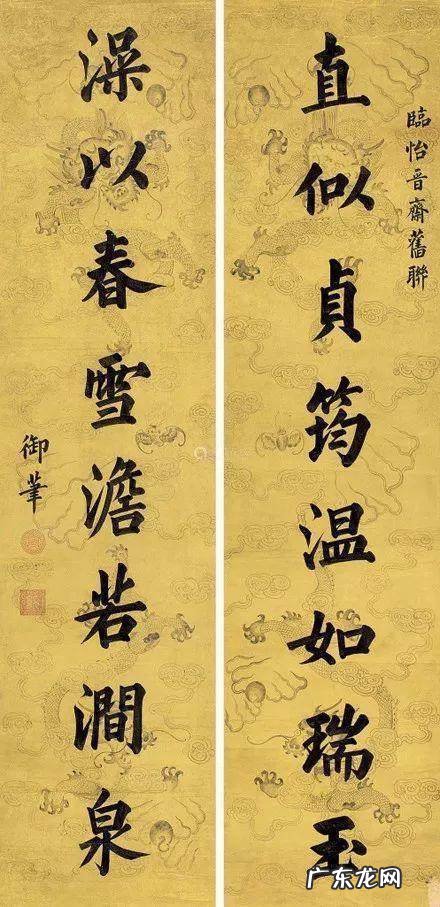 臨怡晉齋舊聯
直似貞筠温如瑞玉
澡以春雪澹若澗泉
御筆
广东龙网